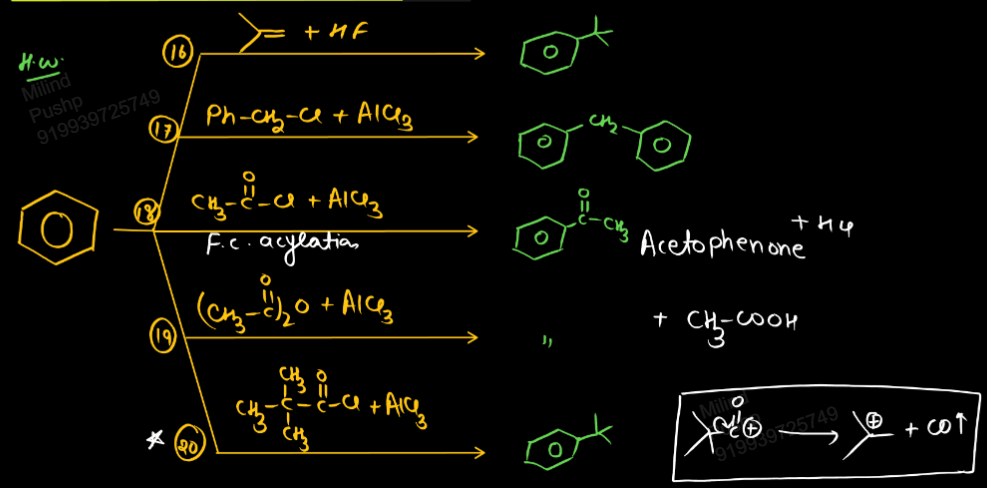 H.W.
Milind
Pushp
919939725749
(16) = + HF
(17) Ph-CH2-Cl + AlCl3
CH2
(18) CH3-C-Cl + AlCl3
O
F.C. acylation
O
C-CH3
Acetophenone + HCl
(19) (CH3-C)2O + AlCl3
O
,, + CH3-COOH
(20) CH3-C-C-Cl + AlCl3
CH3 O
CH3
O
C⊕ → ⊕ + CO↑
Milind
919939725749